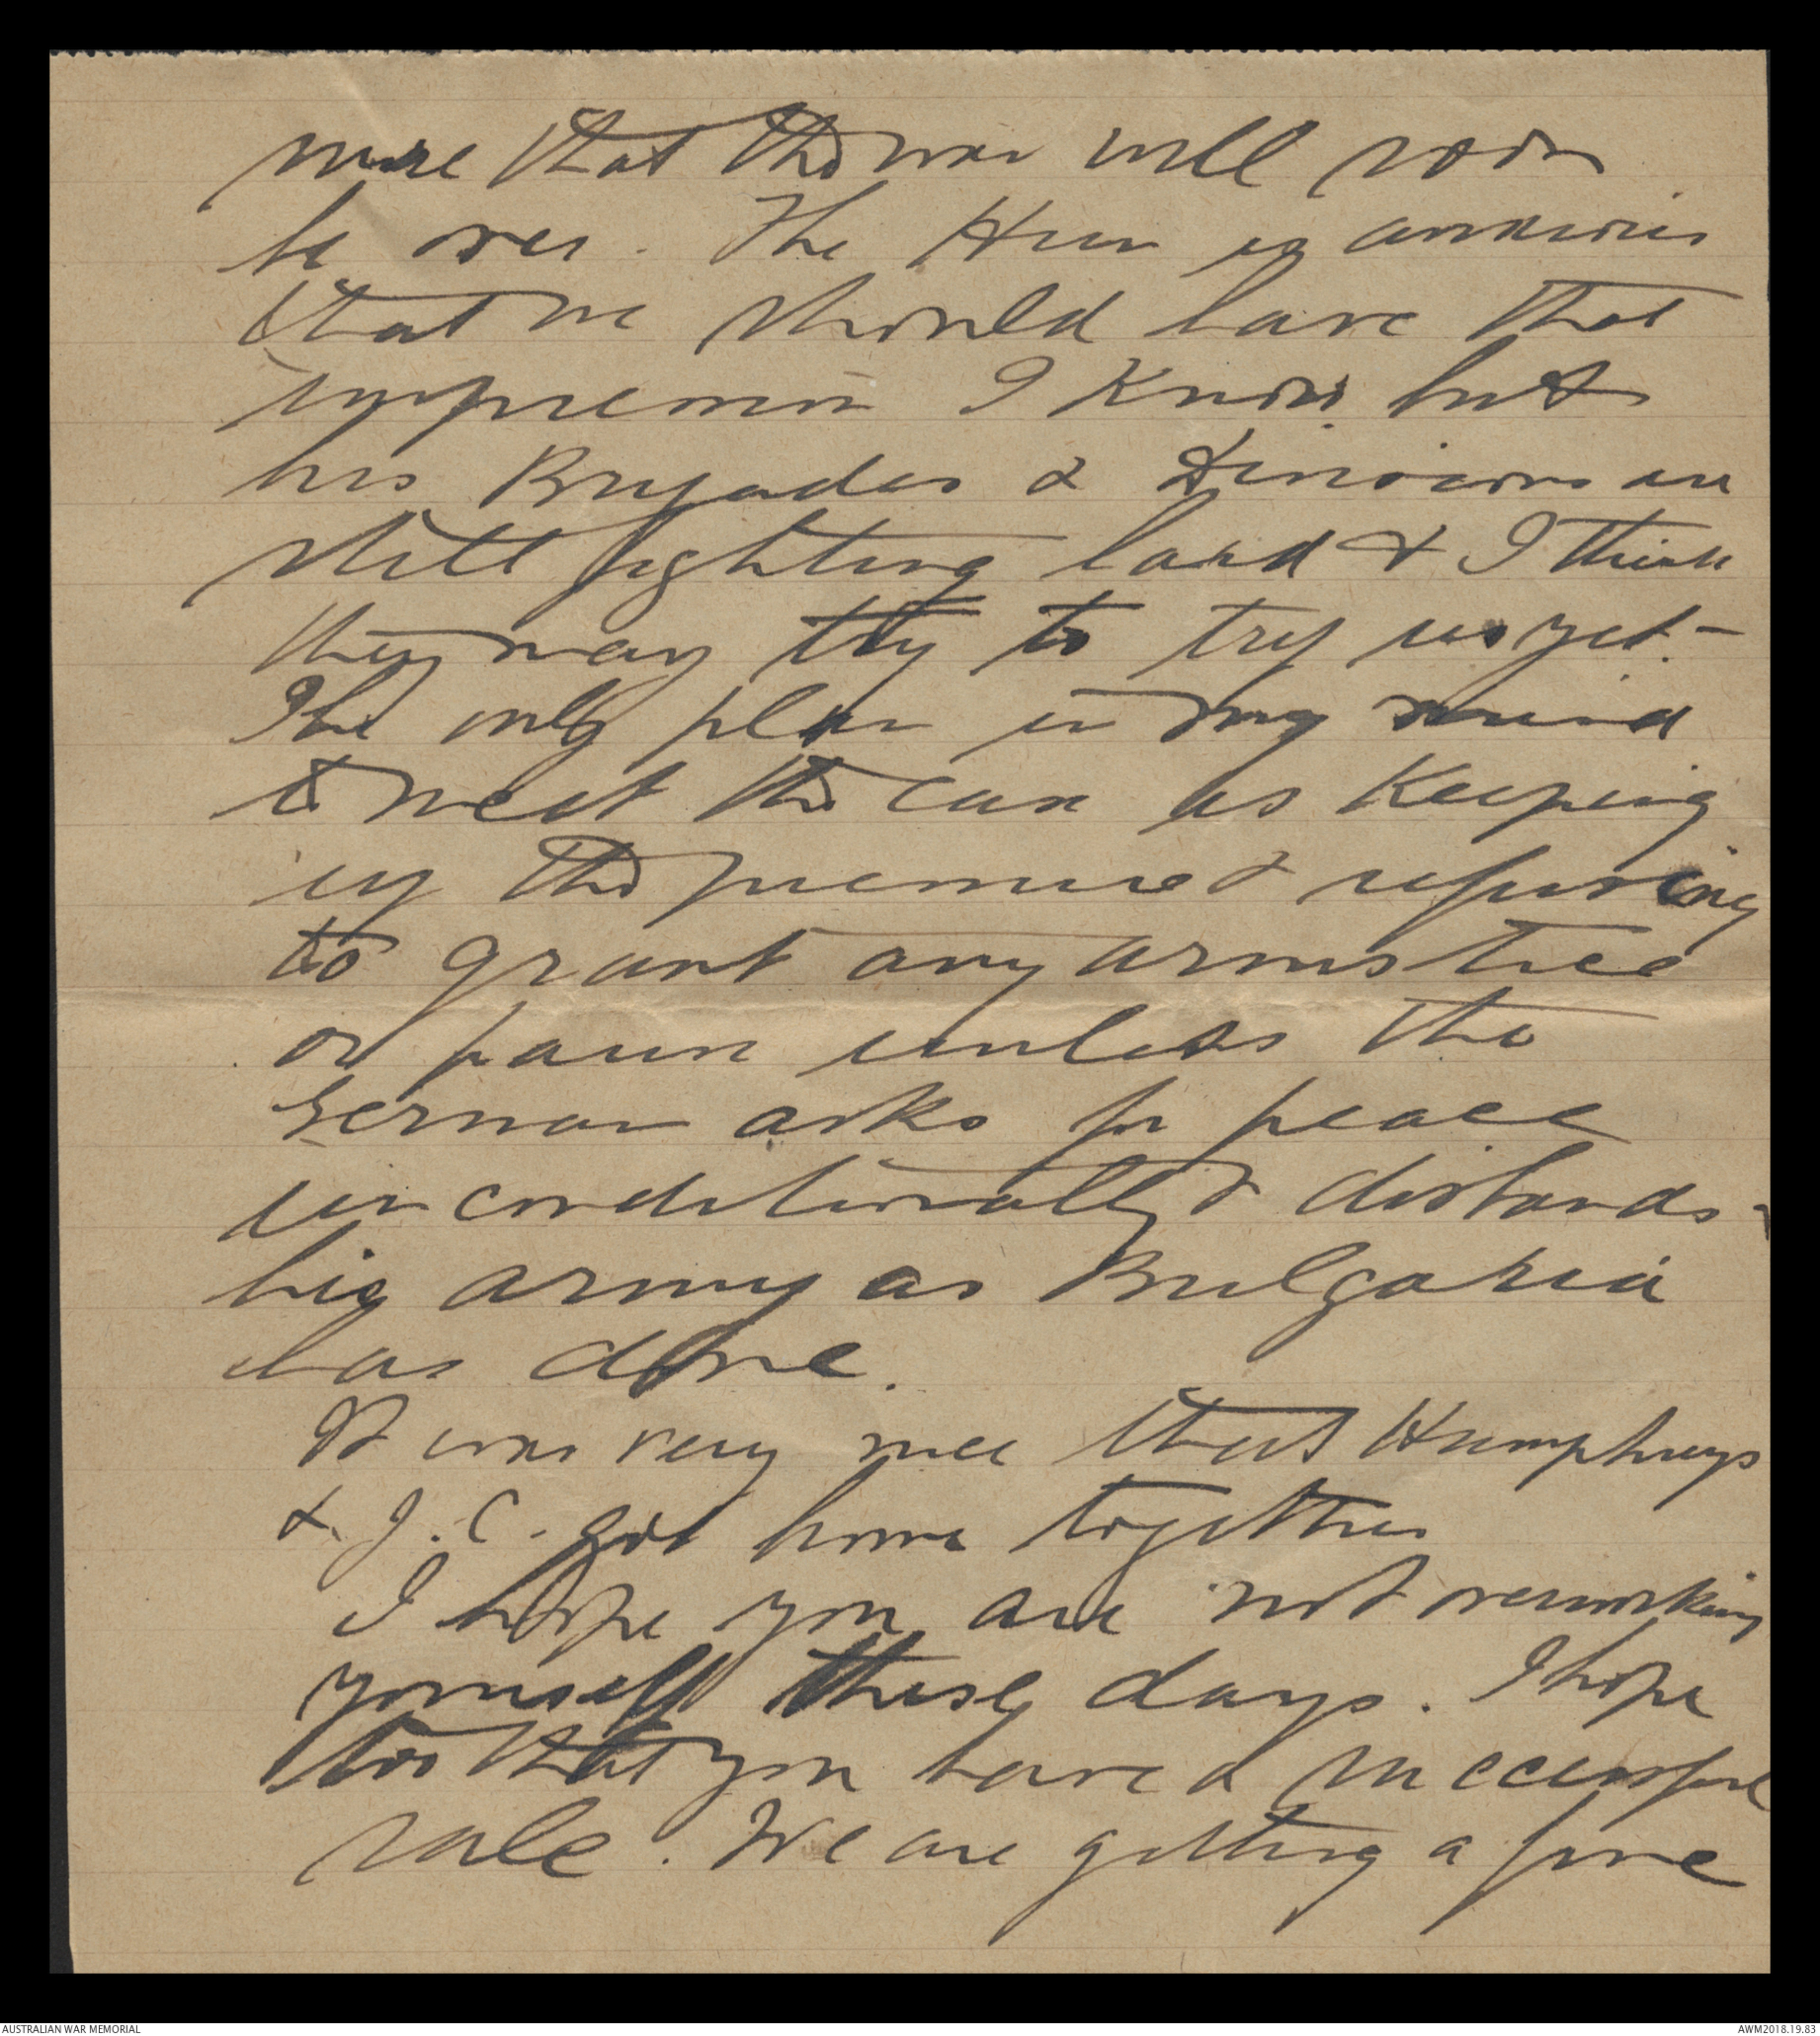 sure that the war will soon
be over. The Hun is anxious
that we should have that
impression I know but
his Brigades & Divisions are
still fighting hard & I think
they may try to try us yet -
The only plan in my mind
to meet the case is keeping
up the pressure & refusing
to grant any armistice
or pause unless the
German asks for peace
unconditionally & disbands
his army as Bulgaria
has done.
It was very nice that Humphreys
& J. C. got home together
I hope you are not overworking
yourself these days. I hope
too that you have a successful
sale. We are getting a fine
AUSTRALIAN WAR MEMORIAL
AWM2018.19.83